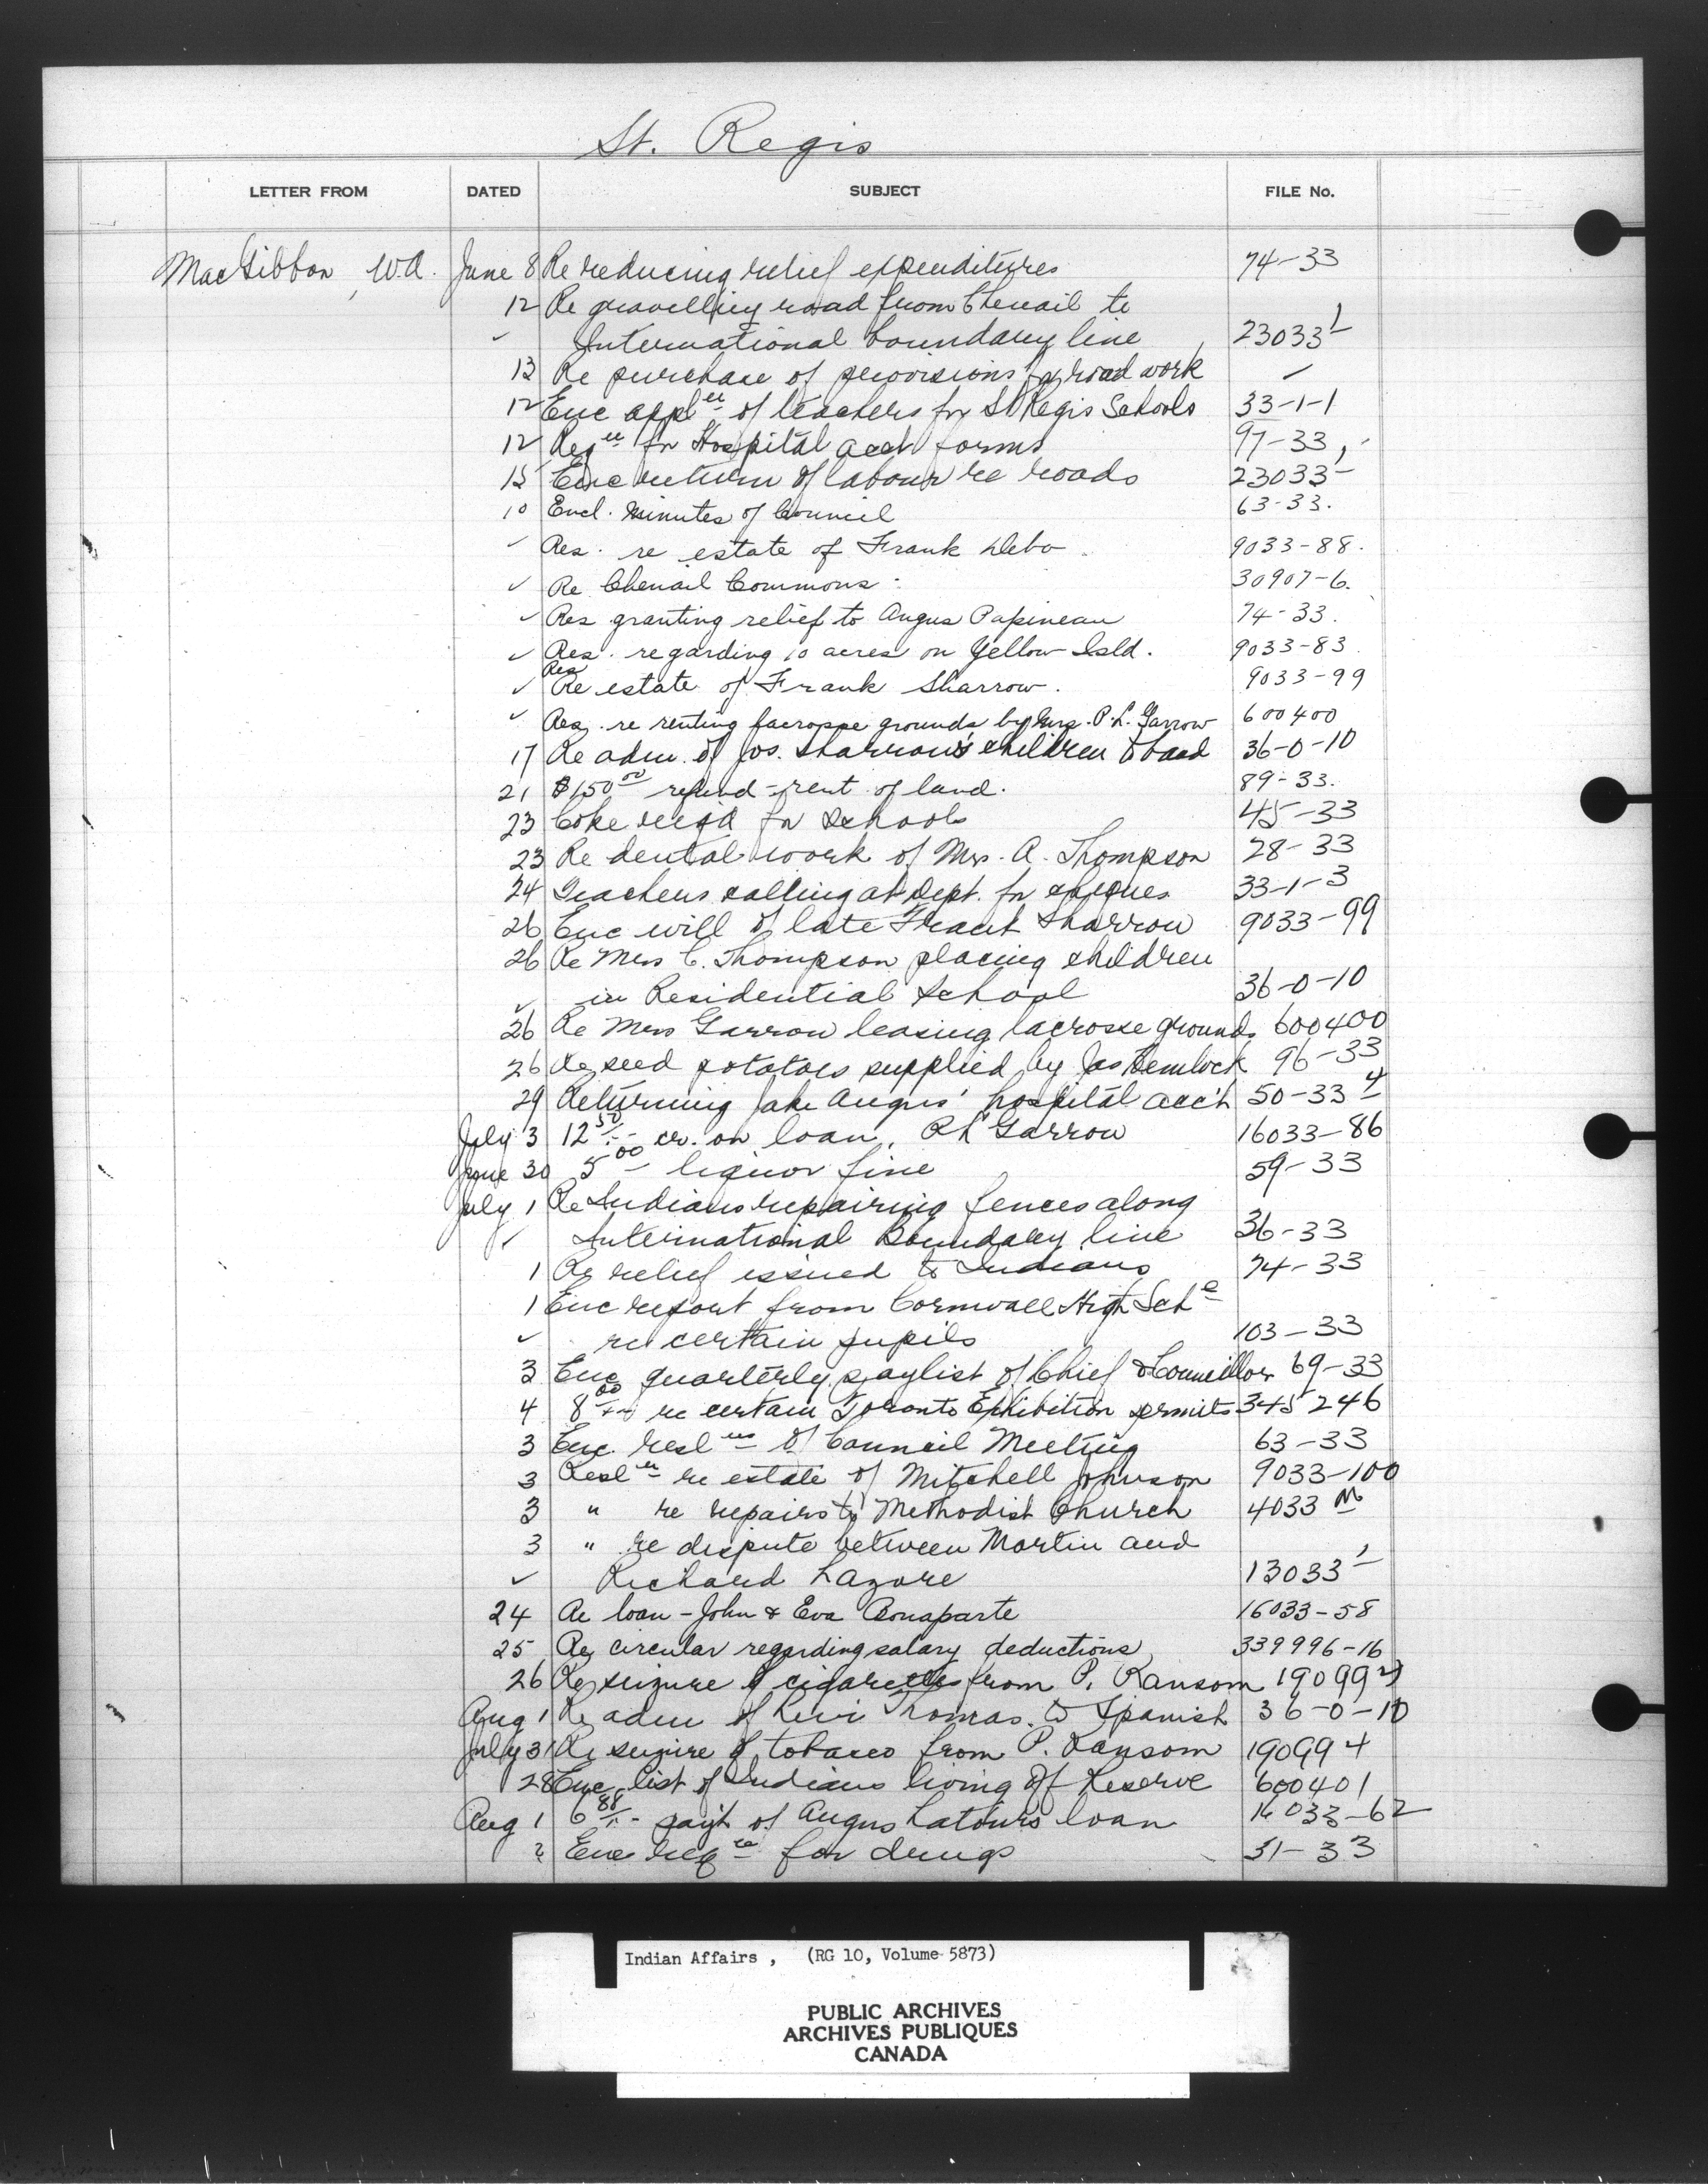 St. Regis
LETTER FROM DATED SUBJECT FILE No.
MacGibbon, W.A. June 8 Re reducing relief expenditures 74-33
12 Re gravelling road from Chenail to
✓ International boundary line 23033-1
13 Re purchase of provisions for road work ✓
12 Enc appl er of teachers for St Regis Schools 33-1-1
12 Req for Hospital acct forms 97-33
15 Enc return of labour re roads 23033-
10 Encl. minutes of Council 63-33.
✓ Res. re estate of Frank Debo. 9033-88.
✓ Re Chenail Commons. 30907-6.
✓ Res granting relief to Angus Papineau 74-33.
✓ Res. regarding 10 acres on Yellow Isld. 9033-83.
✓ Res Re estate of Frank Sharrow. 9033-99
✓ Res. re renting lacrosse grounds by Mrs. P. L. Garrow 600400
17 Re adm. of Jos. Sharrow's children to 36-0-10
21 $150 00 refund-rent of land. 89-33.
23 Coke req'd for schools 45-33
23 Re dental work of Mrs. A. Thompson 28-33
24 Teachers calling at Dept. for cheques 33-1-3
26 Enc will of late Frank Sharrow 9033-99
26 Re Mrs C. Thompson placing children
✓ in Residential School 36-0-10
26 Re Mrs Garrow leasing lacrosse grounds 600400
26 Re seed potatoes supplied by Jas Hemlock 96-33
29 Returning Jake Angus' hospital acc't 50-33-4
July 3 12 50 cr. on loan, Garrow 16033-86
June 30 5 00 liquor fine 59-33
July 1 Re Indians repairing fences along
✓ International Boundary line 36-33
1 Re relief issued to Indians 74-33
1 Enc report from Cornwall High Sch l
✓ re certain pupils 103-33
3 Enc quarterly paylist of Chief & Councillor 69-33
4 8 00 re certain Toronto Exhibition permits 345246
3 Enc. resl ns of Council Meeting 63-33
3 Resl n re estate of Mitchell Johnson 9033-100
3 " re repairs to Methodist Church 4033 M
3 " re dispute between Martin and
✓ Richard Lazore 13033-1
24 Re loan - John & Eva Bonaparte 16033-58
25 Re circular regarding salary deductions 339996-16
26 Re seizure of cigarettes from P. Ransom 190994
Aug 1 Re adm of Levi Thomas to Spanish 36-0-10
July 31 Re seizure of tobacco from P. Ransom 190994
28 Enc list of Indians living off Reserve 600401
Aug 1 6 88 pay't of Angus Latour's loan 16033-62
2 Enc req n for drugs 31-33
Indian Affairs, (RG 10, Volume 5873)
PUBLIC ARCHIVES
ARCHIVES PUBLIQUES
CANADA